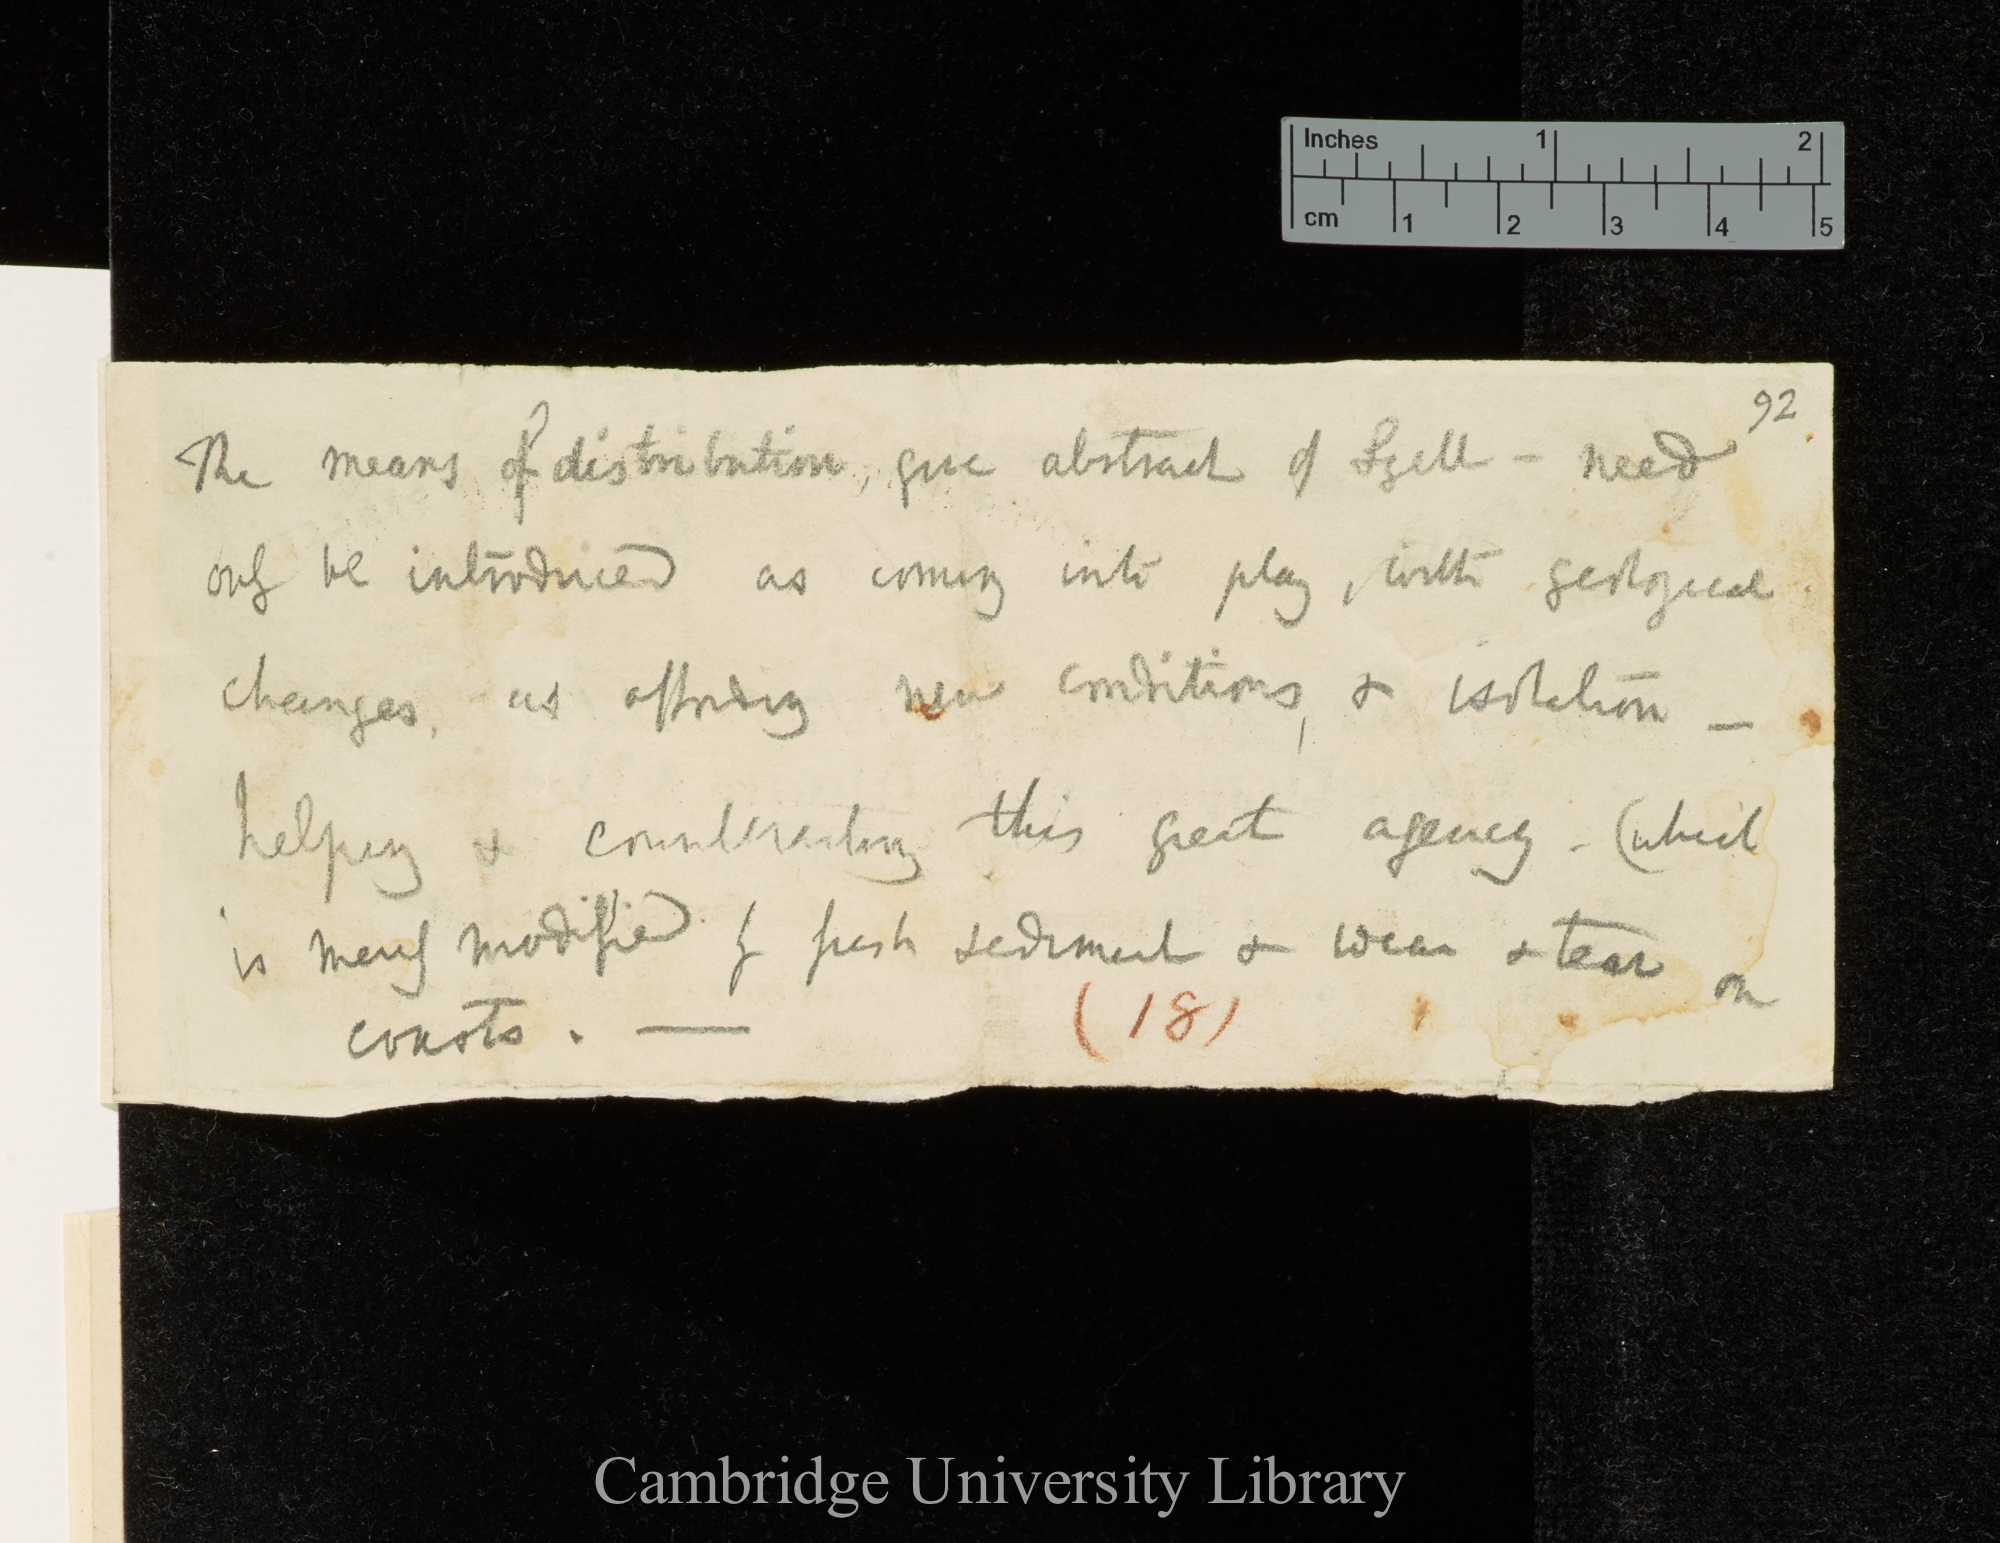 92
The means of distribution, give abstract of Lyell – need
only be introduced as coming into play, with geological
changes, as affording new conditions, & isolation —
helping & counteracting this great agency. (which
is merely modified by fresh sediment & wear & tear on
coasts. —
(18)
Inches 1 2
cm 1 2 3 4 5
Cambridge University Library